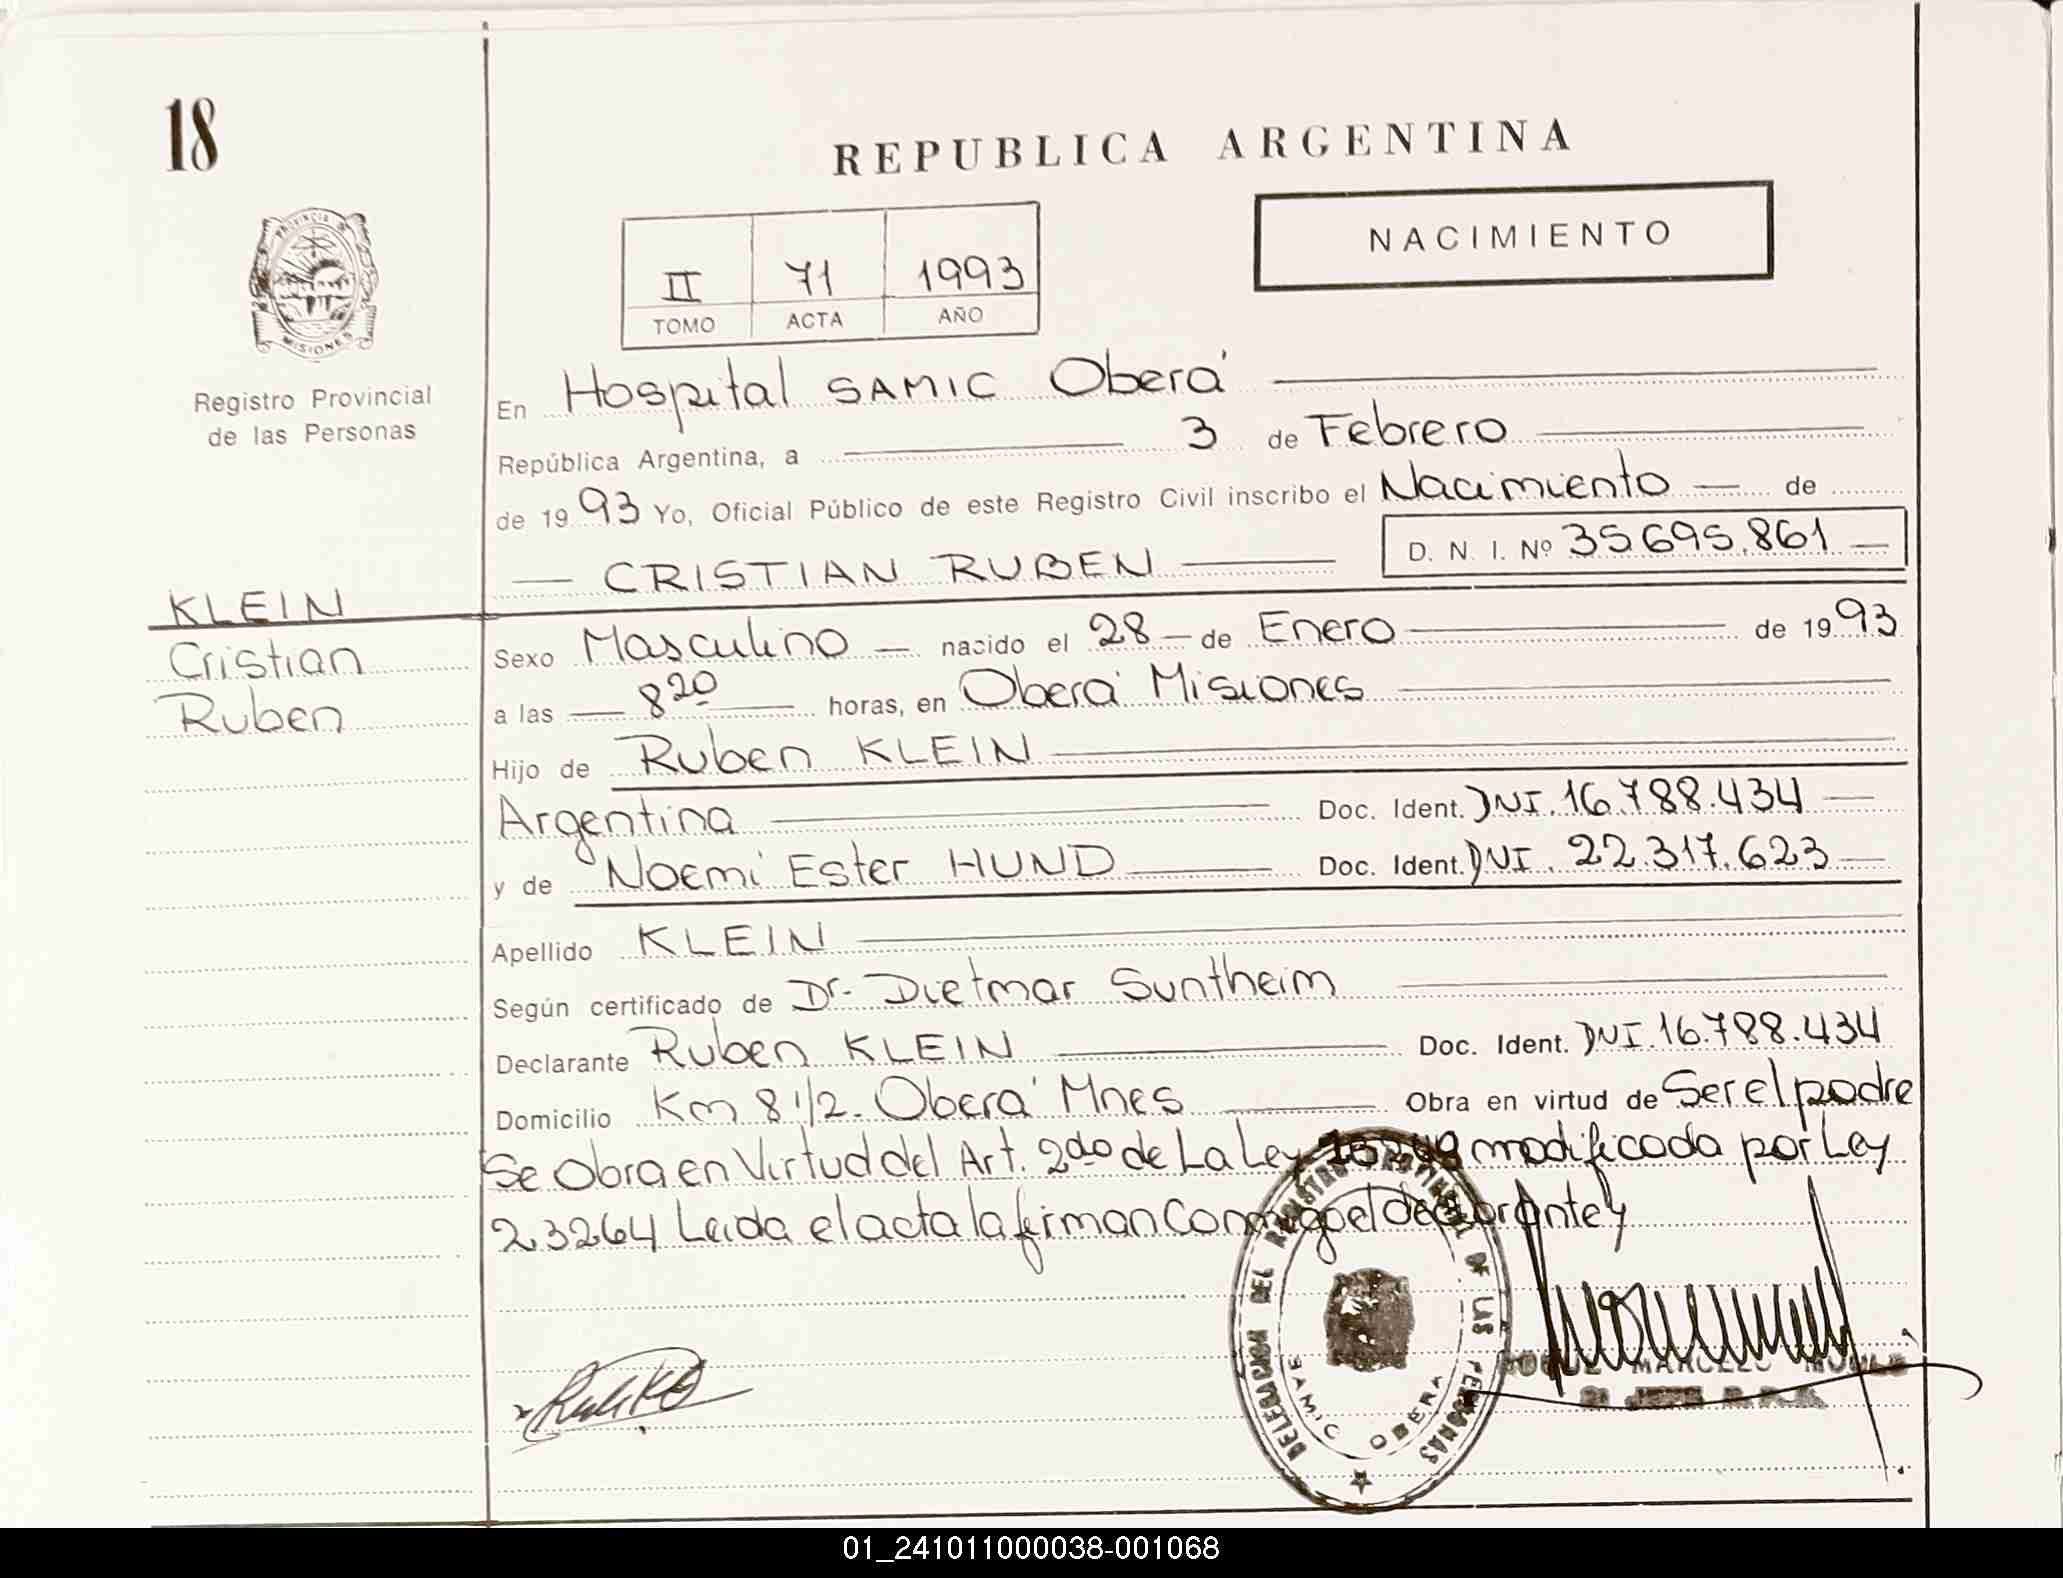 18
REPUBLICA ARGENTINA
PROVINCIA DE
MISIONES
NACIMIENTO
II 71 1993
TOMO ACTA AÑO
Registro Provincial
de las Personas
En Hospital SAMIC Oberá
República Argentina, a 3 de Febrero
de 1993 Yo, Oficial Público de este Registro Civil inscribo el Nacimiento de
CRISTIAN RUBEN D. N. I. Nº 35.695.861
KLEIN
Cristian
Ruben
Sexo Masculino nacido el 28 de Enero de 1993
a las 8 20 horas, en Oberá Misiones
Hijo de Ruben KLEIN
Argentina Doc. Ident. DNI. 16.788.434
y de Noemi Ester HUND Doc. Ident. DNI. 22.317.623
Apellido KLEIN
Según certificado de Dr. Dietmar Suntheim
Declarante Ruben KLEIN Doc. Ident. DNI. 16.788.434
Domicilio Km 8 1/2. Oberá Mnes Obra en virtud de Ser el padre
Se Obra en Virtud del Art. 2do de La Ley modificada por Ley
23264 Leida el acta la firman Conmigo el declarante y
DELEGACION DEL REGISTRO PROVINCIAL DE LAS PERSONAS
SAMIC OBERA
MARCELO
01_241011000038-001068